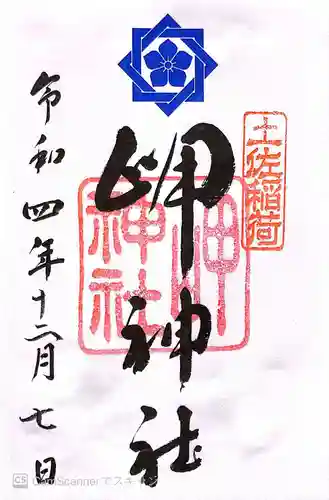 土佐稲荷
岬神社
岬
神社
令和四年十二月七日
CS CamScannerでスキャン